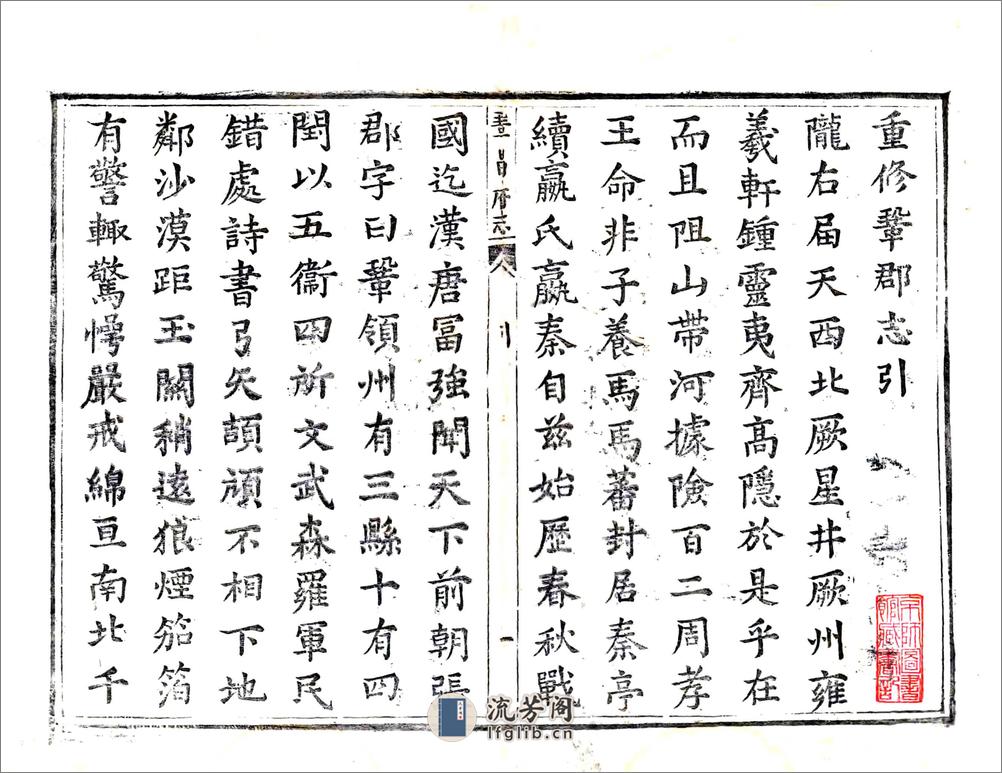 重修鞏郡志引
隴右屆天西北厥星井厥州雍
羲軒鍾靈夷齊高隱於是乎在
而且阻山帶河據險百二周孝
王命非子養馬馬蕃封居秦亭
續嬴氏嬴秦自兹始歷春秋戰
鞏昌府志
引
一
國迄漢唐冨強聞天下前朝張
郡字曰鞏領州有三縣十有四
閏以五衞四所文武森羅軍民
錯處詩書弓矢頡頏不相下地
鄰沙漠距玉關稍遠狼煙笳箔
有警輙驚愕嚴戒綿亘南北千
圖書
館藏書
流芳阁
lfglib.cn